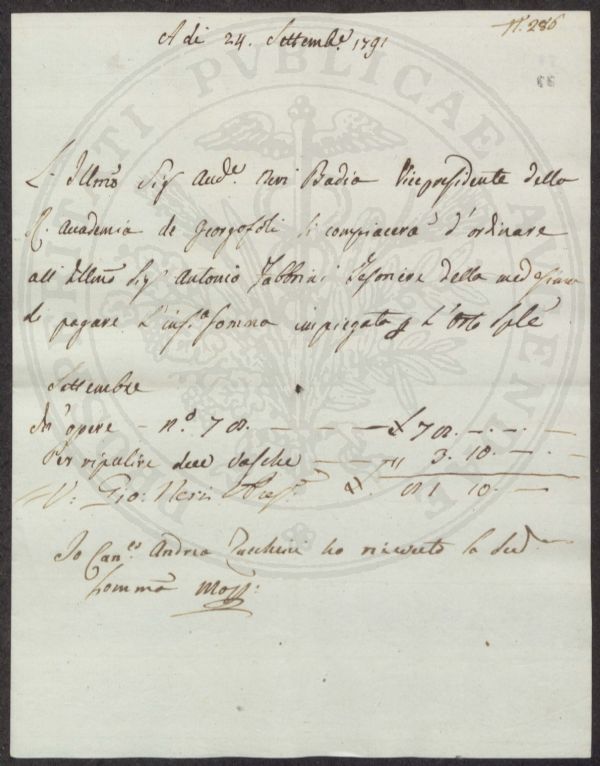 N.° 286
A di 24. Settemb.e 1791
66
L' Illmo Sig.r Aud.e Neri Badia Vicepresidente della
R. Accademia de Georgofili si compiacerà d'ordinare
all Illmo Sig.r Antonio Fabbrini Tesoriere della medesima
di pagare l'inf.a somma impiegata p l'Orto Sple
Settembre
In opere - n.o 78. - - - £ 78. - -
Per ripulire due vasche - - " 3. 10. -
V: Gio: Neri £ 81 10. -
Io Can.co Andrea Zucchini ho ricevuto la sud.a
somma
PROSPERITATI PVBLICAE AVGENDAE